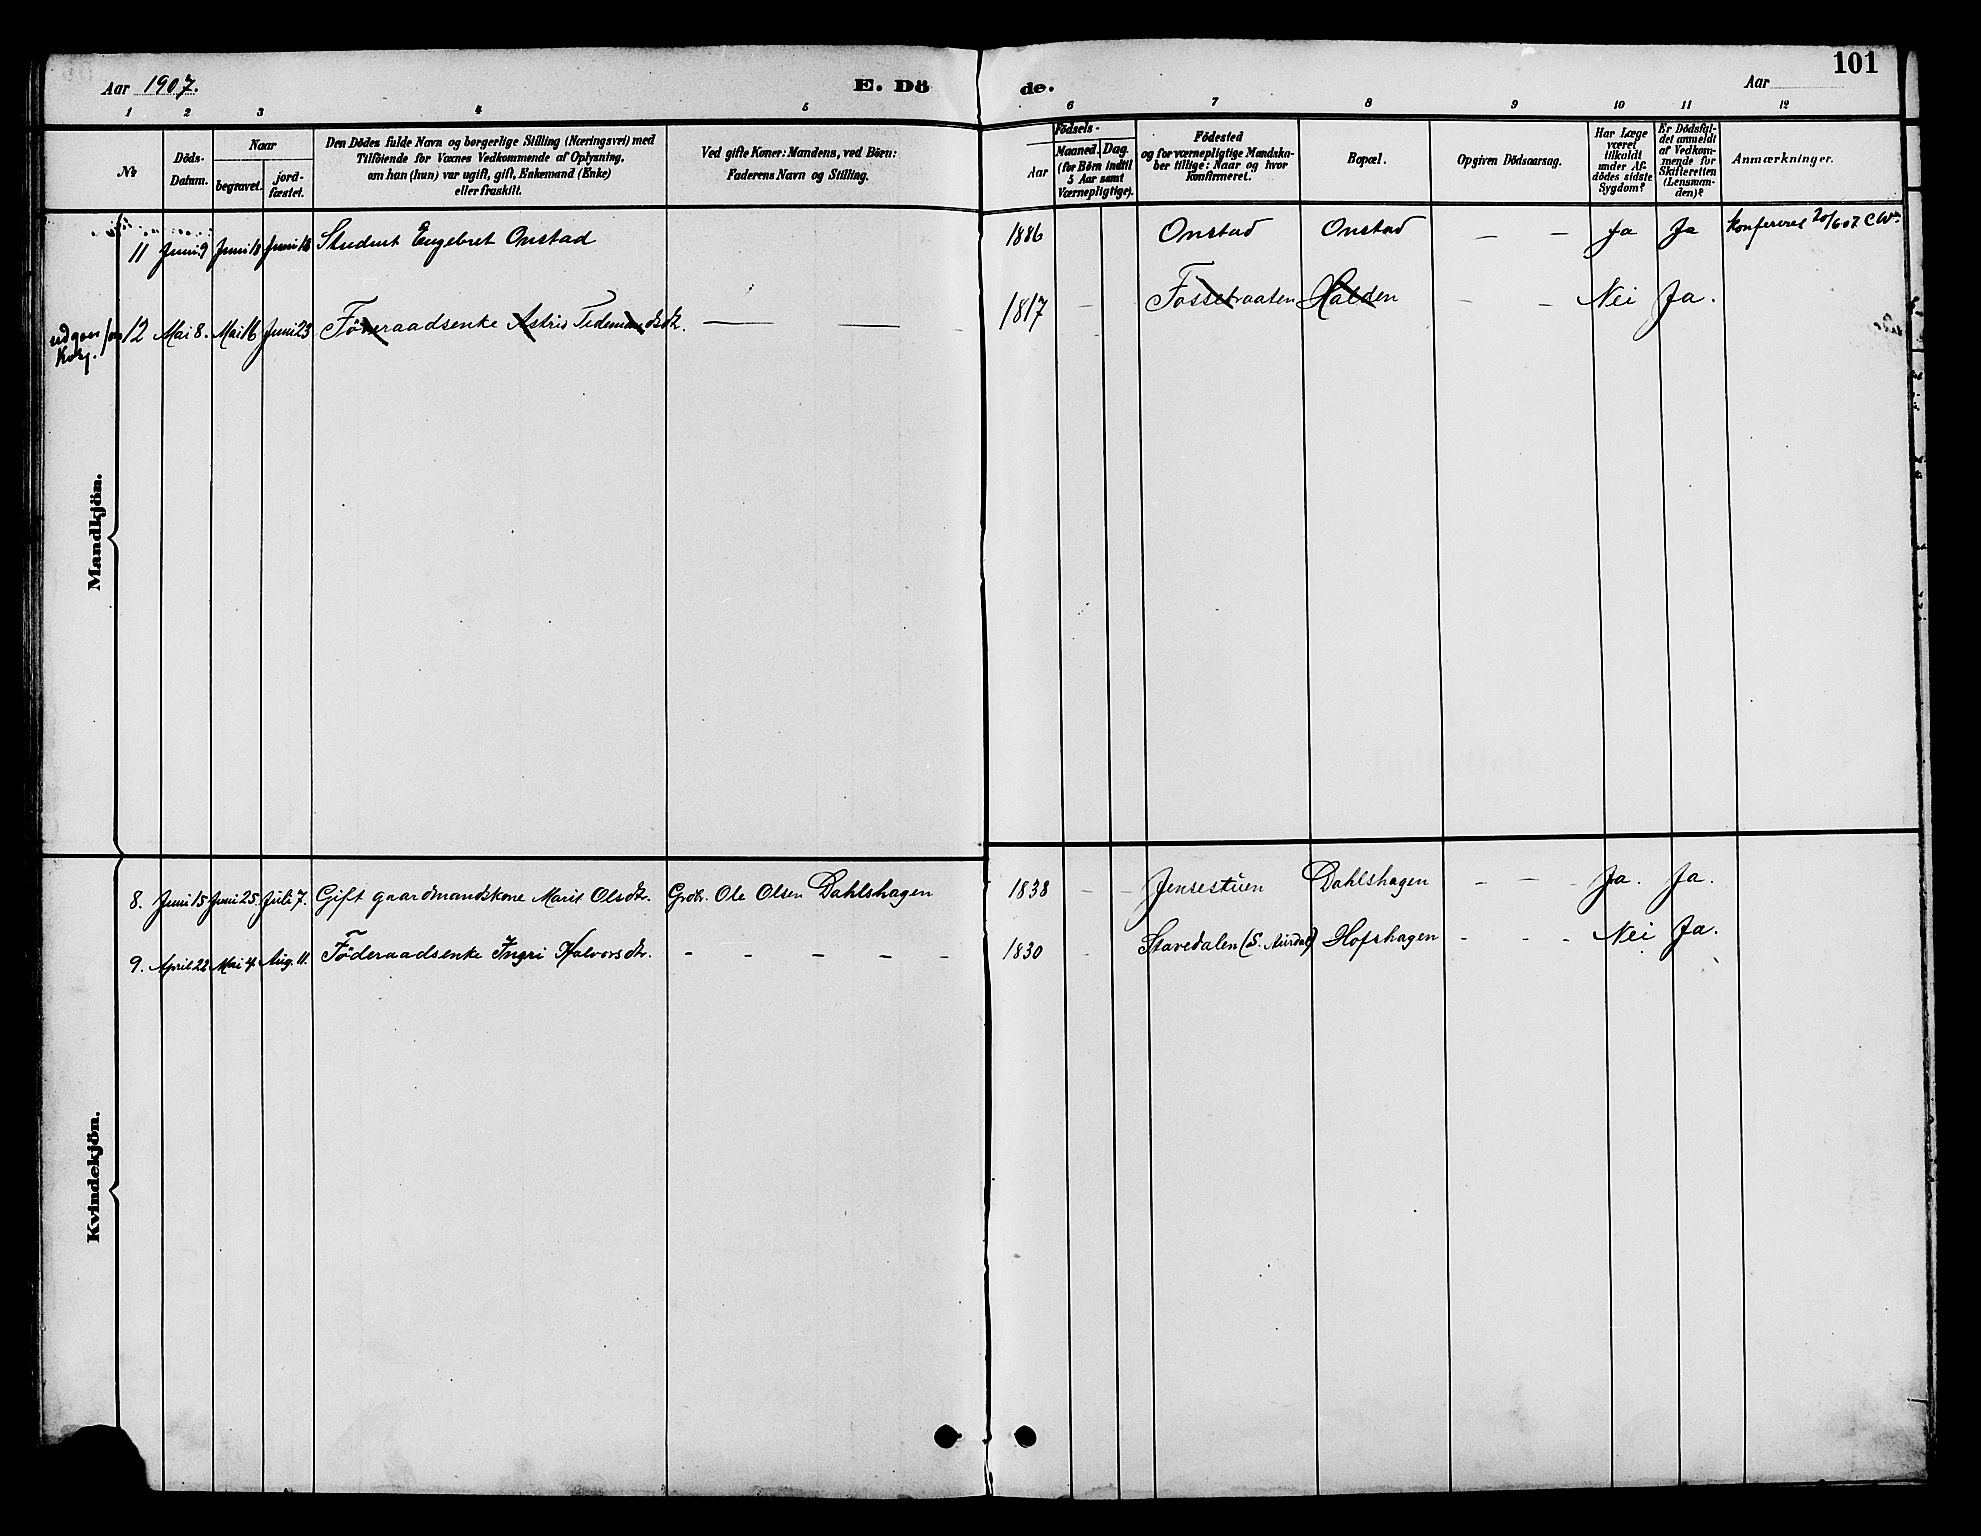 Aar 1907.
E. Dö
de.
Aar
101
1 2 3 4 5 6 7 8 9 10 11 12
№
Döds-
Datum.
Naar
begravet.
jord-
fæstet.
Den Dödes fulde Navn og borgerlige Stilling (Næringsvei) med
Tilföiende for Voxnes Vedkommende af Oplysning,
om han (hun) var ugift, gift, Enkemand (Enke)
eller fraskilt.
Ved gifte Koner: Mandens, ved Börn:
Faderens Navn og Stilling.
Födsels-
Aar
Maaned. Dag.
(for Börn indtil
5 Aar samt
Værnepligtige).
Födested
og for værnepligtige Mandska-
ber tillige: Naar og hvor
Konfirmeret.
Bopæl.
Opgiven Dödsaarsag.
Har Læge
været
tilkaldt
under Af-
dödes sidste
Sygdom?
Er Dödsfal-
det anmeldt
af Vedkom-
mende for
Skifteretten
(Lensman-
den)?
Anmærkninger.
Mandkjön.
11 Juni 9 Juni 18 Juni 18 Student Engebret Onstad 1886 Onstad Onstad — — Ja Ja Konfereret 20/6 07 CWm
12 Mai 8. Mai 16 Juni 23 Föderaadsenke Astrid Tidemandsdtr. — — - 1817 - Fossebraaten Halden — — Nei Ja.
Kvindekjön.
8. Juni 15 Juni 25. Juli 7. Gift gaardmandskone Marit Olsdtr. Grdbr. Ole Olsen Dahlshagen 1838 - - Jensestuen Dahlshagen — — Ja. Ja.
9. April 22 Mai 4. Aug. 11. Föderaadsenke Ingri Halvorsdtr. - - - - - 1830 - Stavedalen (S. Aurdal) Hofshagen - - - Nei Ja.